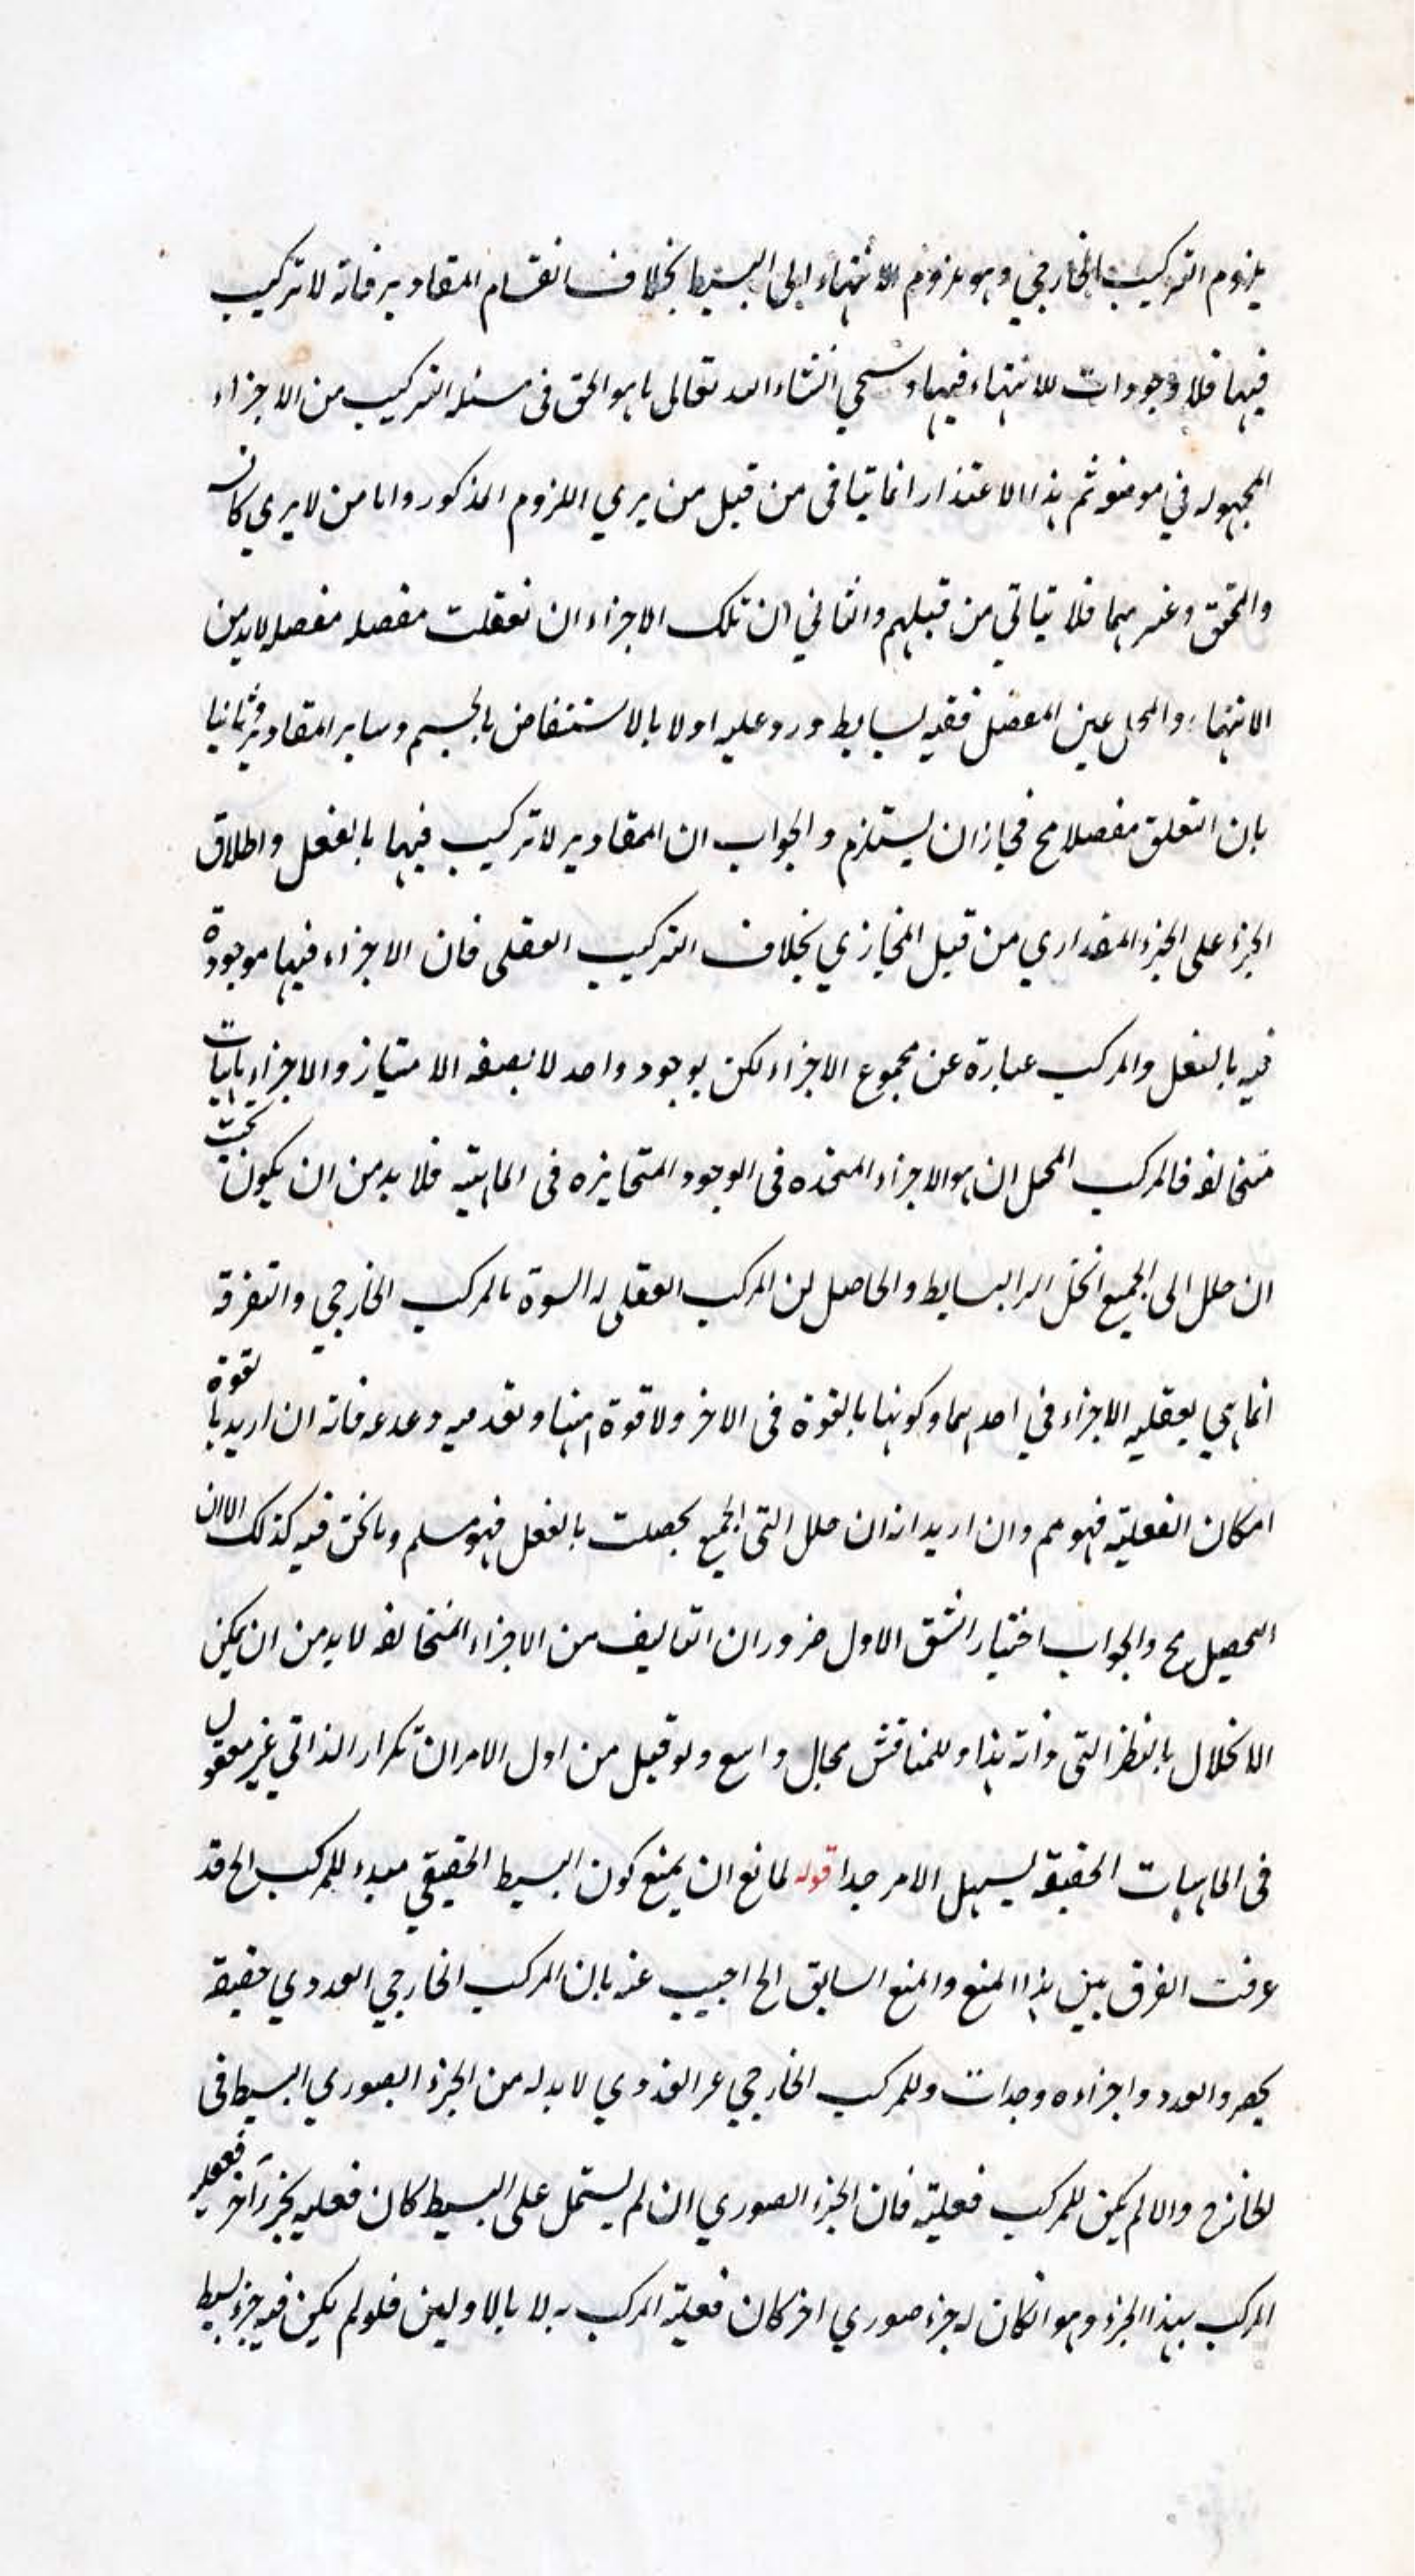 يلزوم التركيب الخارجي وهو ملزوم الانتهاء الى البسيط بخلاف انقسام المقادير فانه لا تركيب
فيها فلا وجودات للانتهاء فيها وسيجي انشاء الله تعالى ما هو الحق فى مسئله التركيب من الاجزاء
المجهوله في موضعه ثم هذا الاعتذار انما يتاقى من قبل من يرى اللزوم المذكور واما من لا يرى كا
والمحقق وغيرهما فلا يتاتي من قبلهم والثاني ان تلك الاجزاء ان تعقلت مفصله مفصله لابد من
الانتهاء والمحل عين المفصل ففيه بسايط ورد عليه اولا بالاستنقاض بالجسم وساير المقادير وثانيا
بان التعلق مفصلا مح فجاز ان يستلزم والجواب ان المقادير لا تركيب فيها بالفعل واطلاق
الجزء على الجزء المقداري من قبل المجازي بخلاف التركيب العقلى فان الاجزاء فيها موجودة
فيه بالفعل والمركب عبارة عن مجموع الاجزاء لكن بوجود واحد لا بصفه الامتياز والاجزاء
متخالفه فالمركب المحل ان هو الاجزاء المتحده فى الوجود المتمايزه فى الماهيته فلا بد من ان يكون بحيث
ان حلل الى الجميع انحل الى البسايط والحاصل ان المركب العقلى له اسوة بالمركب الخارجي والتفرقه
انما هي بعقليه الاجزاء في احدهما وكونها بالقوة فى الاخر ولا قوة ههنا وتقدميه وعدمه فانه ان اريد بالقوة
امكان الفعلية فهو مم وان اريد انه ان حلل التى الجميع بحصلت بالفعل فهو مسلم وما نحن فيه كذلك الا ان
التحصيل مح والجواب اختيار الشق الاول ضرور ان التاليف من الاجزاء المتخالفه لا بد من ان يمكن
الانحلال بالنظر التى ذاته هذا وللمناقش مجال واسع ولو قيل من اول الامر ان تكرار الذاتي غير معقول
فى الماهيات الحقيقه ليسهل الامر جدا قوله لمانع ان يمنع كون البسيط الحقيقي مبدء للمركب الخ قد
عرفت الفرق بين هذا المنع والمنع السابق الخ اجيب عنه بان المركب الخارجي العددي حقيقه
والعدد واجزاءه وحدات وللمركب الخارجي غير العددي لا بد له من الجزء الصوري البسيط فى
الخارج والا لم يكن للمركب فعلية فان الجزء الصوري ان لم يشتمل على البسيط كان فعليه بجزء آخر ففعليه
المركب بهذا الجزء وهو انكان له جزء صوري اخر كان فعلية المركب به لا بالاولين فلو لم يكن فيه جزء بسيط